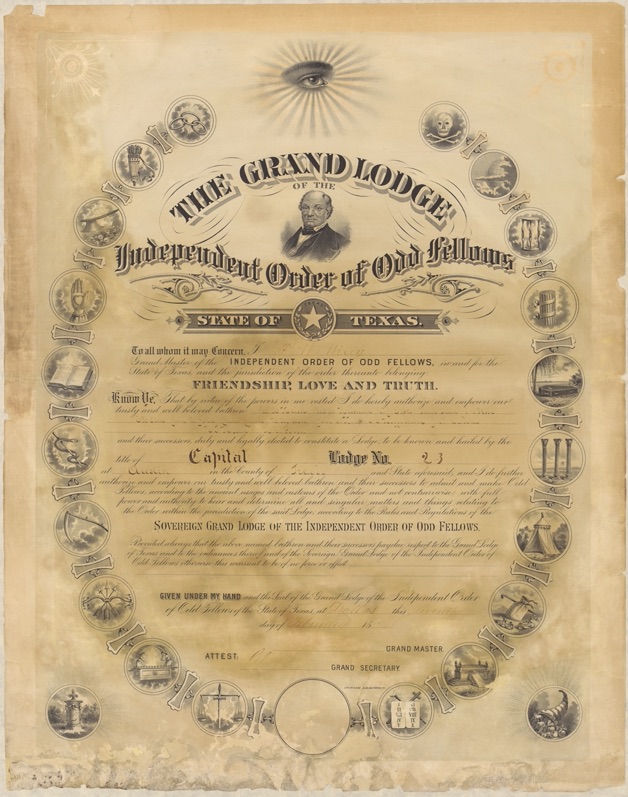 THE GRAND LODGE
OF THE
Independent Order of Odd Fellows
STATE OF TEXAS.
To all whom it may Concern,
Grand Master of the INDEPENDENT ORDER OF ODD FELLOWS, in and for the
State of Texas, and the jurisdiction of the order thereunto belonging
FRIENDSHIP, LOVE AND TRUTH.
Know Ye, That by virtue of the powers in me vested I do hereby authorize and empower our
trusty and well beloved brethren
and their successors, duly and legally elected to constitute a Lodge, to be known and hailed by the
title of Capital Lodge No. 23
at Austin in the County of Travis and State aforesaid, and I do further
authorize and empower our trusty and well beloved brethren and their successors to admit and make Odd
Fellows, according to the ancient usages and customs of the Order and not contrariwise with full
power and authority to hear and determine all and singular, matters and things relating to
the Order within the jurisdiction of the said Lodge, according to the Rules and Regulations of the
SOVEREIGN GRAND LODGE OF THE INDEPENDENT ORDER OF ODD FELLOWS.
Provided always that the above named brethren and their successors pay due respect to the Grand Lodge
of Texas and to the ordinances thereof and of the Sovereign Grand Lodge of the Independent Order of
Odd Fellows otherwise this warrant to be of no force or effect.
GIVEN UNDER MY HAND and the Seal of the Grand Lodge of the Independent Order
of Odd Fellows of the State of Texas, at this
day of 18
GRAND MASTER
ATTEST:
GRAND SECRETARY.